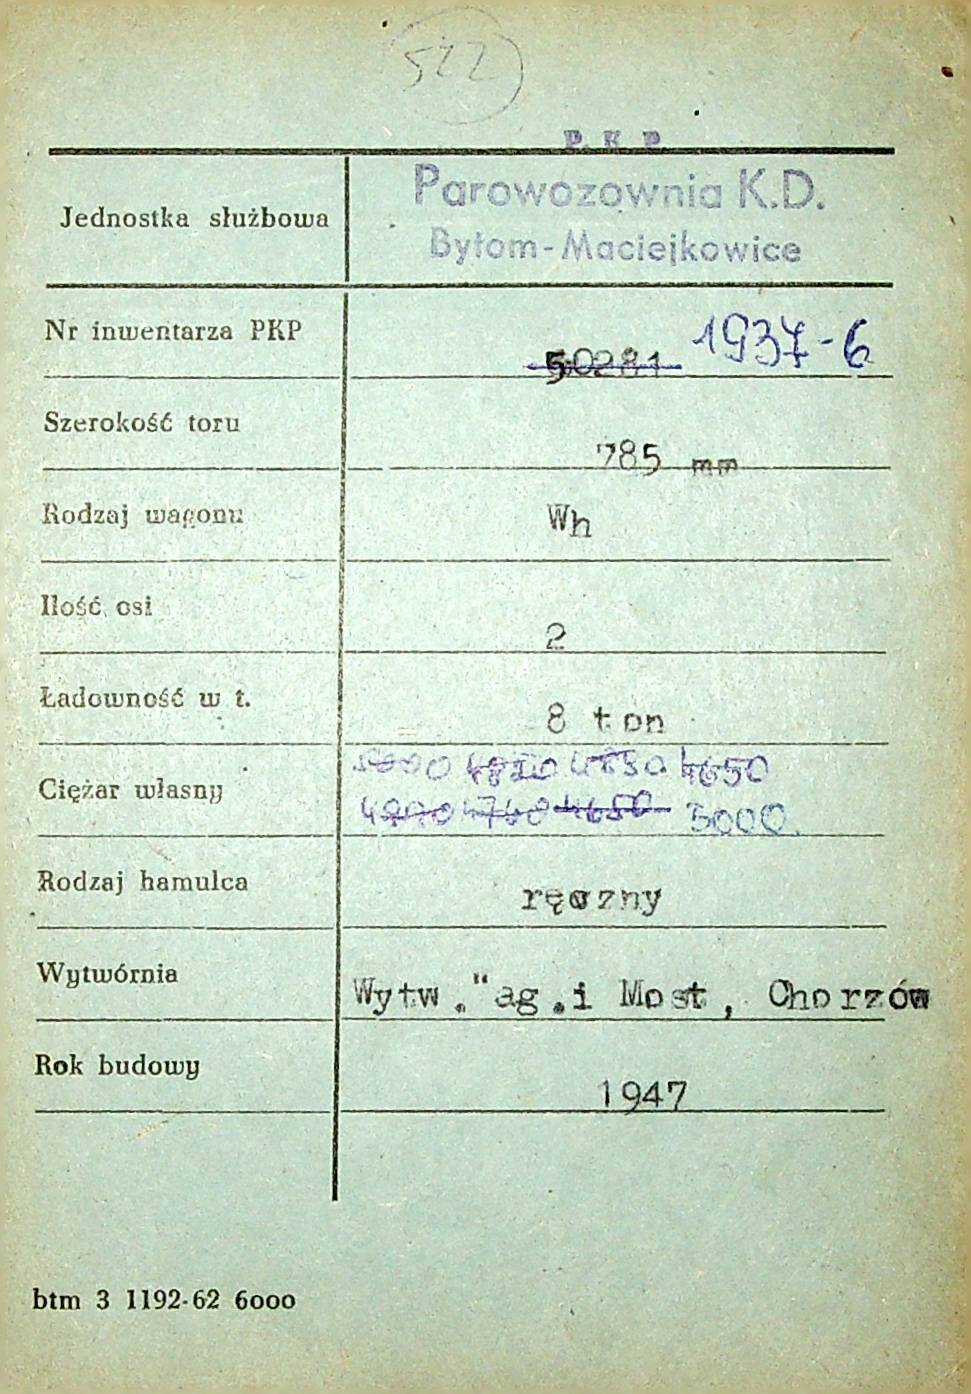 522
P. K. P.
Jednostka służbowa
Parowozownia K.D.
Bytom-Maciejkowice
Nr inwentarza PKP
50281 1937-6
Szerokość toru
785 mm
Rodzaj wagonu
Wh
Ilość osi
2
Ładowność w t.
8 ton
Ciężar własny
4650
4760 4650 5000
Rodzaj hamulca
ręczny
Wytwórnia
Wytw."ag.i Most, Chorzów
Rok budowy
1947
btm 3 1192-62 6000